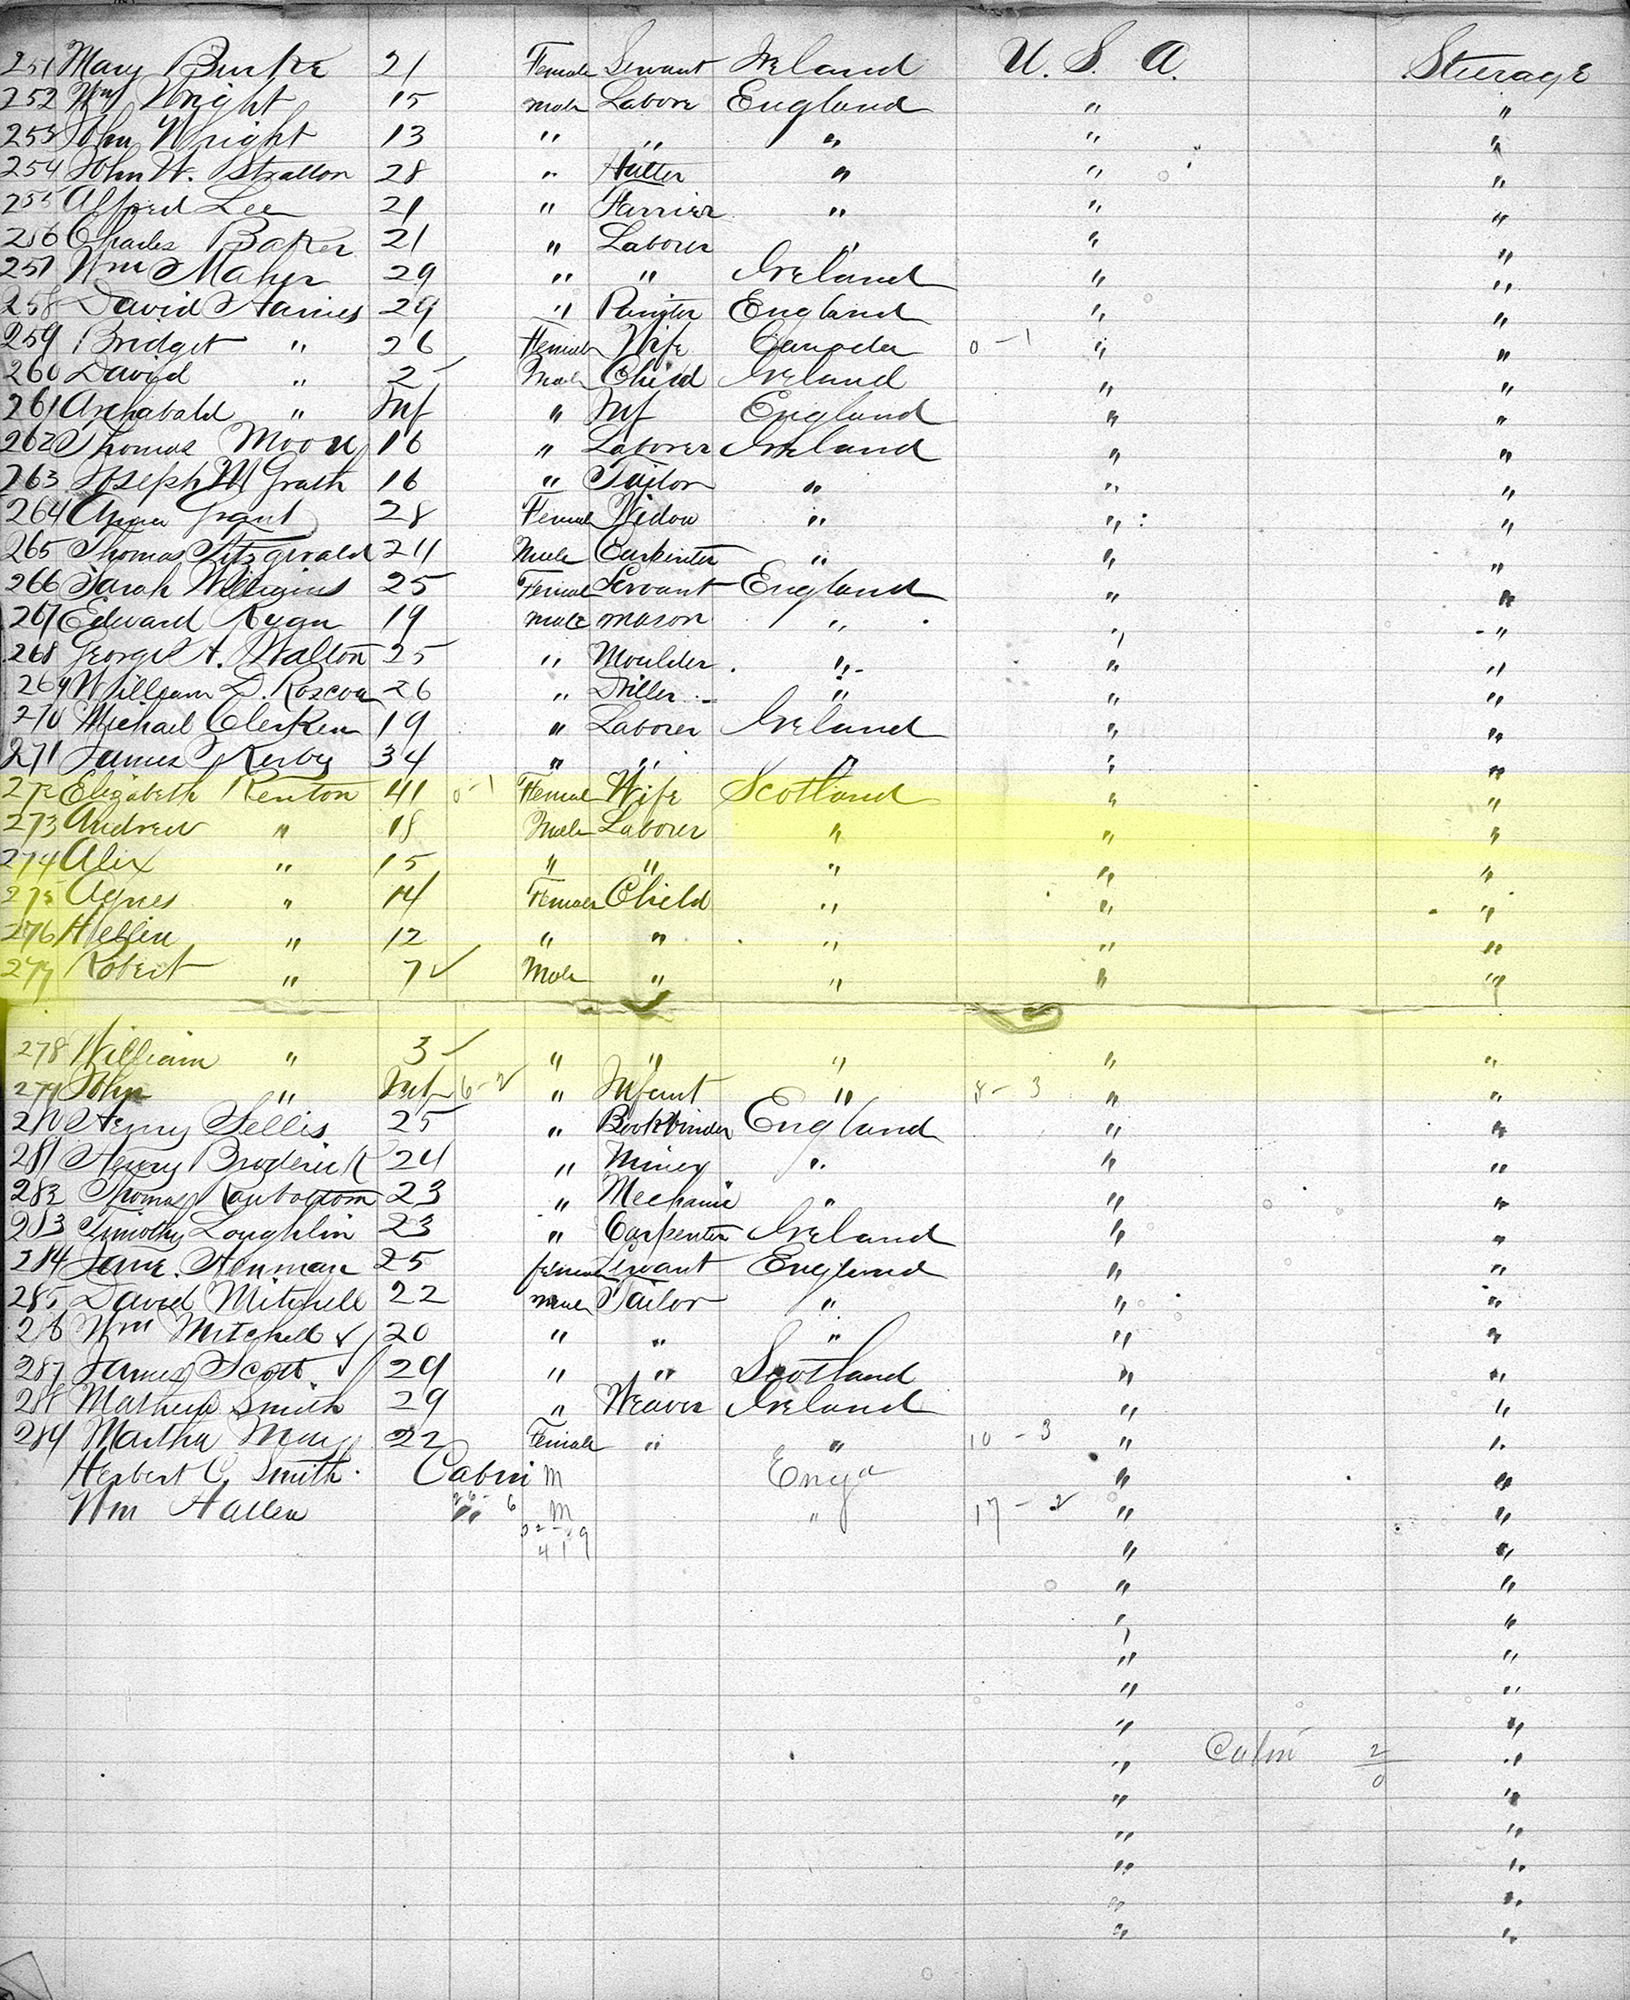 251 Mary Burke 21 Female Servant Ireland U. S. A. Steerage
252 Wm Wright 15 male Labore England " "
253 John Wright 13 " " " " "
254 John W. Stratton 28 " Hatter " " "
255 Alfred Lee 21 " Farrier " " "
256 Charles Baker 21 " Laborer " " "
257 Wm Maher 29 " " Ireland " "
258 David Hainies 29 " Painter England " "
259 Bridget " 26 Female Wife Canada 0 - 1 " "
260 David " 2 Male Child Ireland " "
261 Archabald " Inf " Inf England " "
262 Thomas Moory 16 " Laborer Ireland " "
263 Joseph McGrath 16 " Tailor " " "
264 Anna Grant 28 Female Widow " " "
265 Thomas Fitzgerald 24 Male Carpenter " " "
266 Sarah 25 Female Servant England " "
267 Edward Ryan 19 male mason " " "
268 George A. Walton 25 " Moulder " " "
269 William D. Roscoe 26 " " " "
270 Michael Clerken 19 " Laborer Ireland " "
271 James Kerby 34 " " " " "
272 Elizabeth Renton 41 0 - 1 Female Wife Scotland " "
273 Andrew " 18 Male Laborer " " "
274 Alix " 15 " " " " "
275 Agnes " 14 Female Child " " "
276 Hellin " 12 " " " " "
277 Robert " 7 ✓ Male " " " "
278 William " 3 ✓ " " " " "
279 John " Inf 6 - 2 " Infant " 8 - 3 " "
280 Henry Sellis 25 " Bookbinder England " "
281 Henry Broderick 24 " Miner " " "
282 Thomas Rowbottom 23 " Mechanic " " "
283 Timothy Loughlin 23 " Carpenter Ireland " "
284 Jane Henman 25 female Servant England " "
285 David Mitchell 22 male Tailor " " "
286 Wm Mitchell ✓ 20 " " " " "
287 James Scott ✓ 29 " " Scotland " "
288 Mathew Smith 29 " Weaver Ireland " "
289 Martha May 22 Female " " 10 - 3 " "
Herbert C. Smith Cabin M Engd " "
Wm Hallen " 26 - 6 M " 17 - 2 " "
419 " "
" "
" "
" "
" "
" "
" Cabin 2/0 "
" "
" "
" "
" "
" "